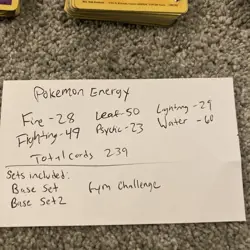 Pokemon Energy
Fire - 28 Leaf - 50 Lightning - 29
Fighting - 49 Psychic - 23 Water - 60
Total cards 239
Sets included:
Base Set Gym Challenge
Base Set 2